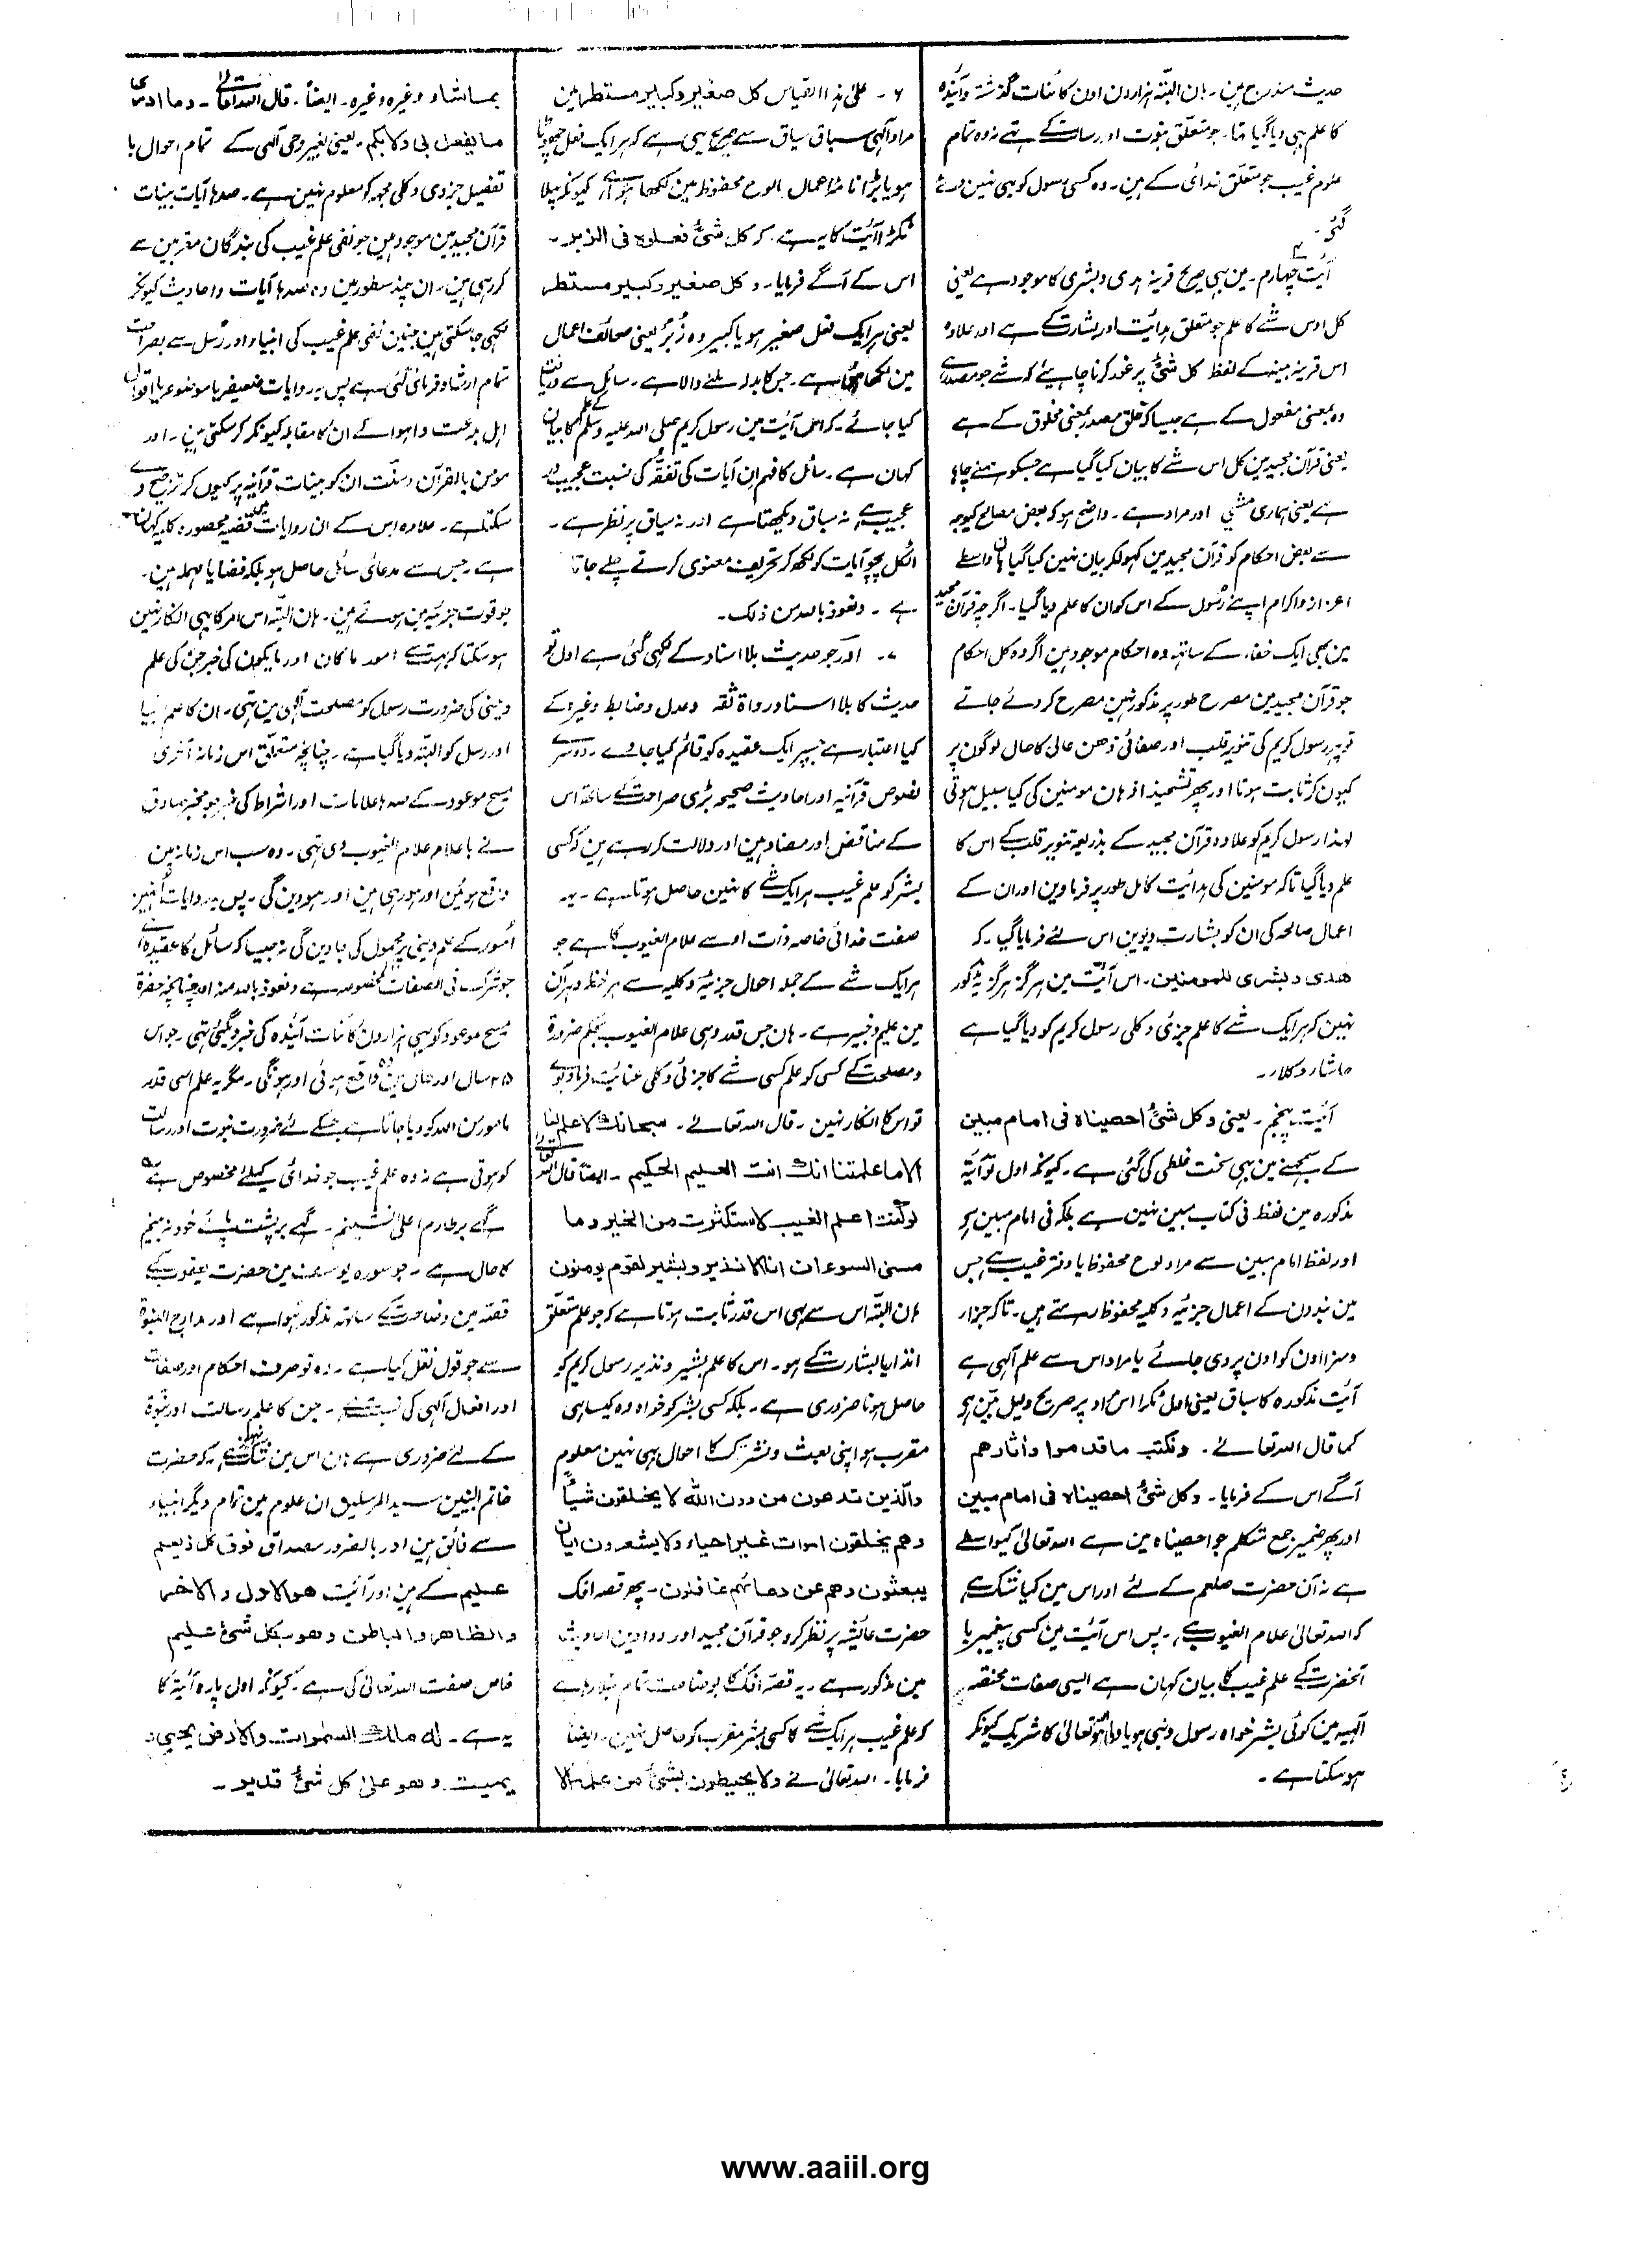 حدیث مندرج ہین۔ ہان البتہ ہزارون اون کائنات گذشتہ و آیندہ
کا علم ہی دیا گیا تہا۔ جو متعلق نبوت اور رسالت کے تہے نہ وہ تمام
علوم غیب جو متعلق خدائی کے ہین۔ وہ کسی رسول کو ہی نہین دیے
گئی۔
آیت چہارم۔ مین ہی صریح قرینہ ہدی و بشری کا موجود ہے یعنی
کل اوس شے کا علم جو متعلق ہدایت اور بشارت کے ہے اور علاوہ
اس قرینہ بینہ کے لفظ کل شئ پر غور کرنا چاہیئے کہ شے جو مصدر ہے
وہ بمعنی مفعول کے ہے جیسا کہ خلق مصدر بمعنی مخلوق کے ہے
یعنی قرآن مجید مین کل اس شے کا بیان کیا گیا ہے جسکو ہمنے چاہا
ہے یعنی ہماری مشیٔ اور مراد ہے۔ واضح ہو کہ بعض مصالح کیوجہ
سے بعض احکام کو قرآن مجید مین کہولکر بیان نہین کیا گیا ہان واسطے
اعزاز و اکرام اپنے رسول کے اس کو ان کا علم دیا گیا۔ اگرچہ قرآن مجید
مین بھی ایک خفاء کے ساتہہ وہ احکام موجود ہین اگر وہ کل احکام
جو قرآن مجید مین مصرح طور پر مذکور نہین مصرح کر دئے جاتے
تو پہر رسول کریم کی تنویر قلب اور صفائی ذھن عالی کا حال لوگون پر
کیون کر ثابت ہوتا اور پھر تشحیذ اذہان مومنین کی کیا سبیل ہوتی
لہذا رسول کریم کو علاوہ قرآن مجید کے بذریعہ تنویر قلب کے اس کا
علم دیا گیا تاکہ مومنین کی ہدایت کامل طور پر فرماوین اور ان کے
اعمال صالحہ کی ان کو بشارت دیوین اس لئے فرمایا گیا۔ کہ
ھدی و بشری للمومنین۔ اس آیت مین ہرگز ہرگز یہ مذکور
نہین کہ ہر ایک شے کا علم جزئی و کلی رسول کریم کو دیا گیا ہے
حاشا و کلا۔
آیت پنجم۔ یعنی و کل شئ احصیناہ فی امام مبین
کے سمجہنے مین بہی سخت غلطی کی گئی ہے۔ کیونکہ اول تو آیۃ
مذکورہ مین لفظ فی کتاب مبین نہین ہے بلکہ فی امام مبین ہے
اور لفظ امام مبین سے مراد لوح محفوظ یا دفتر غیب ہے جس
مین بندون کے اعمال جزئیہ و کلیہ محفوظ رہتے ہیں۔ تاکہ جزا
و سزا اون کو اون پر دی جائے یا مراد اس سے علم آلہی ہے
آیت مذکورہ کا سباق یعنی اول ٹکرا اس امر پر صریح دلیل بین ہے
کما قال اللہ تعالےٰ۔ و نکتب ما قدموا و اثارھم
آگے اس کے فرمایا۔ و کل شئ احصیناہ فی امام مبین
اور پھر ضمیر جمع متکلم جو احصیناہ مین ہے اللہ تعالیٰ کیواسطے
ہے نہ آن حضرت صلعم کے لئے اور اس مین کیا شک ہے
کہ اللہ تعالیٰ علام الغیوب ہے۔ پس اس آیت مین کسی پیغمبر یا
آنحضرت کے علم غیب کا بیان کہان ہے ایسی صفات مختصہ
آلہیہ مین کوئی بشر خواہ رسول و نبی ہو یا ولی ہو اللہ تعالیٰ کا شریک کیونکر
ہو سکتا ہے۔
۶۔ علیٰ ہذا القیاس کل صغیر و کبیر مستطر مین
مراد آلہی سباق سیاق سے صریح یہی ہے کہ ہر ایک فعل چھوٹا
ہو یا بڑا نامۂ اعمال یا لوح محفوظ مین لکھا ہوا ہے کیونکہ پہلا
ٹکڑا آیت کا یہ ہے۔ کہ کل شئ فعلوہ فی الزبر۔
اس کے آگے فرمایا۔ و کل صغیر و کبیر مستطر
یعنی ہر ایک فعل صغیر ہو یا کبیر وہ زُبُر یعنی صحائف اعمال
مین لکھا ہوا ہے۔ جس کا بدلہ ملنے والا ہے۔ سائل سے دریافت
کیا جائے۔ کہ اس آیت مین رسول کریم صلی اللہ علیہ وسلم کے علم کا بیان
کہان ہے۔ سائل کا فہم ان آیات کی تفقہ کی نسبت عجیب در
عجیب ہے نہ سباق دیکھتا ہے اور نہ سیاق پر نظر ہے۔
اٹکل پچو آیات کو لکھ کر تحریف معنوی کرتے چلے جاتا
ہے۔ و نعوذ باللہ من ذلک۔
۷۔ اور جو حدیث بلا اسناد کے لکھی گئی ہے اول تو
حدیث کا بلا اسناد رواۃ ثقہ و عدل و ضابط وغیرہ کے
کیا اعتبار ہے جسپر ایک عقیدہ کو قائم کیا جاوے۔ دوسرے
نصوص قرآنیہ اور احادیث صحیحہ بڑی صراحت کے ساتھ اس
کے مناقض اور مضاد ہین اور دلالت کر رہے ہین کہ کسی
بشر کو علم غیب ہر ایک شے کا نہین حاصل ہوتا ہے۔ یہ
صفت خدائی خاصہ ذات اوسے علام الغیوب کا ہے جو
ہر ایک شے کے جملہ احوال جزئیہ و کلیہ سے ہر لحظہ و ہر آن
مین علیم و خبیر ہے۔ ہان جس قدر وہی علام الغیوب بحکم ضرورۃ
و مصلحت کے کسی کو علم کسی شے کا جزئی و کلی عنایت فرماوے
تو اس کا انکار نہین۔ قال اللہ تعالےٰ۔ سبحانک لا علم لنا
الا ما علمتنا انک انت العلیم الحکیم۔ ایضاً قال اللہ تعالیٰ
لو کنت اعلم الغیب لاستکثرت من الخیر و ما
مسنی السوء ان انا الا نذیر و بشیر لقوم یومنون
ہان البتہ اس سے بہی اس قدر ثابت ہوتا ہے کہ جو علم متعلق
انذار یا بشارت کے ہو۔ اس کا علم بشیر و نذیر رسول کریم کو
حاصل ہونا ضروری ہے۔ بلکہ کسی بشر کو خواہ وہ کیسا ہی
مقرب ہو اپنی بعث و نشر تک کا احوال بہی نہین معلوم
والذین تدعون من دون اللہ لا یخلقون شیأً
و ھم یخلقون اموات غیر احیاء و لا یشعرون ایان
یبعثون و ھم عن دعائہم غافلون۔ پھر قصہ افک
حضرت عائشہ پر نظر کرو جو قرآن مجید اور دواوین احادیث
مین مذکور ہے۔ یہ قصہ افک کا بوضاحت تام بتلا رہا ہے
کہ علم غیب ہر ایک شے کا کسی بشر مقرب کو حاصل نہین۔ ایضاً
فرمایا۔ اللہ تعالیٰ نے و لا یحیطون بشئ من علمہ الا
بما شاء وغیرہ وغیرہ۔ ایضاً۔ قال اللہ تعالیٰ۔ و ما ادری
ما یفعل بی و لا بکم۔ یعنی بغیر وحی آلہی کے تمام احوال با
تفصیل جزوی و کلی مجہہ کو معلوم نہین ہے۔ صدہا آیات بینات
قرآن مجید مین موجود ہین جو نفی علم غیب کی بندگان مقربین سے
کر رہی ہین۔ ان چند سطور مین وہ صدہا آیات و احادیث کیونکر
لکھی جا سکتی ہین جنمین نفی علم غیب کی انبیاء اور رُسل سے بصراحت
تمام ارشاد فرمائی گئی ہے پس یہ روایات ضعیفہ یا موضوعہ یا اقوال
اہل بدعت و اہوا کے ان کا مقابلہ کیونکر کر سکتی ہین۔ اور
مومن بالقرآن و سنت ان کو بینات قرآنیہ پر کیوں کر ترجیح دے
سکتا ہے۔ علاوہ اس کے ان روایات مین قضیہ محصورہ کلیہ کہان
ہے۔ جس سے مدعائی سائل حاصل ہو بلکہ قضایا مہملہ ہین۔
جو قوت جزئیہ مین ہوتے ہین۔ ہان البتہ اس امر کا بہی انکار نہین
ہو سکتا کہ بہت سے امور ما کان اور ما یکون کی خبر جن کی علم
دینی کی ضرورت رسول کو مصلحت آلہی مین تہی۔ ان کا علم انبیا
اور رسل کو البتہ دیا گیا ہے۔ چنانچہ متعلق اس زمانہ آخری
مسیح موعود کے صدہا علامات اور اشراط کی خبر جو مخبر صادق
نے با علام علام الغیوب دی تہی۔ وہ سب اس زمانہ مین
واقع ہوئین اور ہو رہی ہین اور ہووین گی۔ پس یہ روایات انہین
اُمور کے علم دینی پر محمول کی جاوین گی نہ جیسا کہ سائل کا عقیدہ ہے
جو شرک فی الصفات المخصوصہ ہے و نعوذ باللہ منہ اور چنانچہ حضرۃ
مسیح موعود کو بہی ہزارون کائنات آیندہ کی خبر دیگئی تہی۔ جو اس
۲۵ سال اور ما بین وہ واقع ہوئی اور ہونگی۔ مگر یہ علم اسی قدر
مامور من اللہ کو دیا جاتا ہے جسکے لئے ضرورت نبوت اور رسالت
کو ہوتی ہے نہ وہ علم غیب جو خدائی کیلئے مخصوص ہے
گہے بر طارم اعلیٰ نشینم۔ گہے بر پشت پائے خود نہ بینم
کا حال ہے۔ جو سورہ یوسف مین حضرت یعقوب کے
قصہ مین وضاحت کے ساتھ مذکور ہوا ہے اور مدارج النبوۃ
سے جو قول نقل کیا ہے۔ وہ تو صرف احکام اور صفات
اور افعال آلہی کی نسبت ہے۔ جن کا علم رسالت اور نبوۃ
کے لئے ضروری ہے ہان اس مین شک نہین۔ کہ حضرت
خاتم النبین سید المرسلین ان علوم مین تمام دیگر انبیاء
سے فائق ہین اور بالضرور مصداق فوق کل ذی علم
علیم کے ہین اور آیت ھو الاول و الاخر
و الظاھر و الباطن و ھو بکل شئ علیم
خاص صفت اللہ تعالیٰ کی ہے۔ کیونکہ اول پارہ آیۃ کا
یہ ہے۔ لہ ملک السموات و الارض یحیی و
یمیت و ھو علی کل شئ قدیر۔
www.aaiil.org